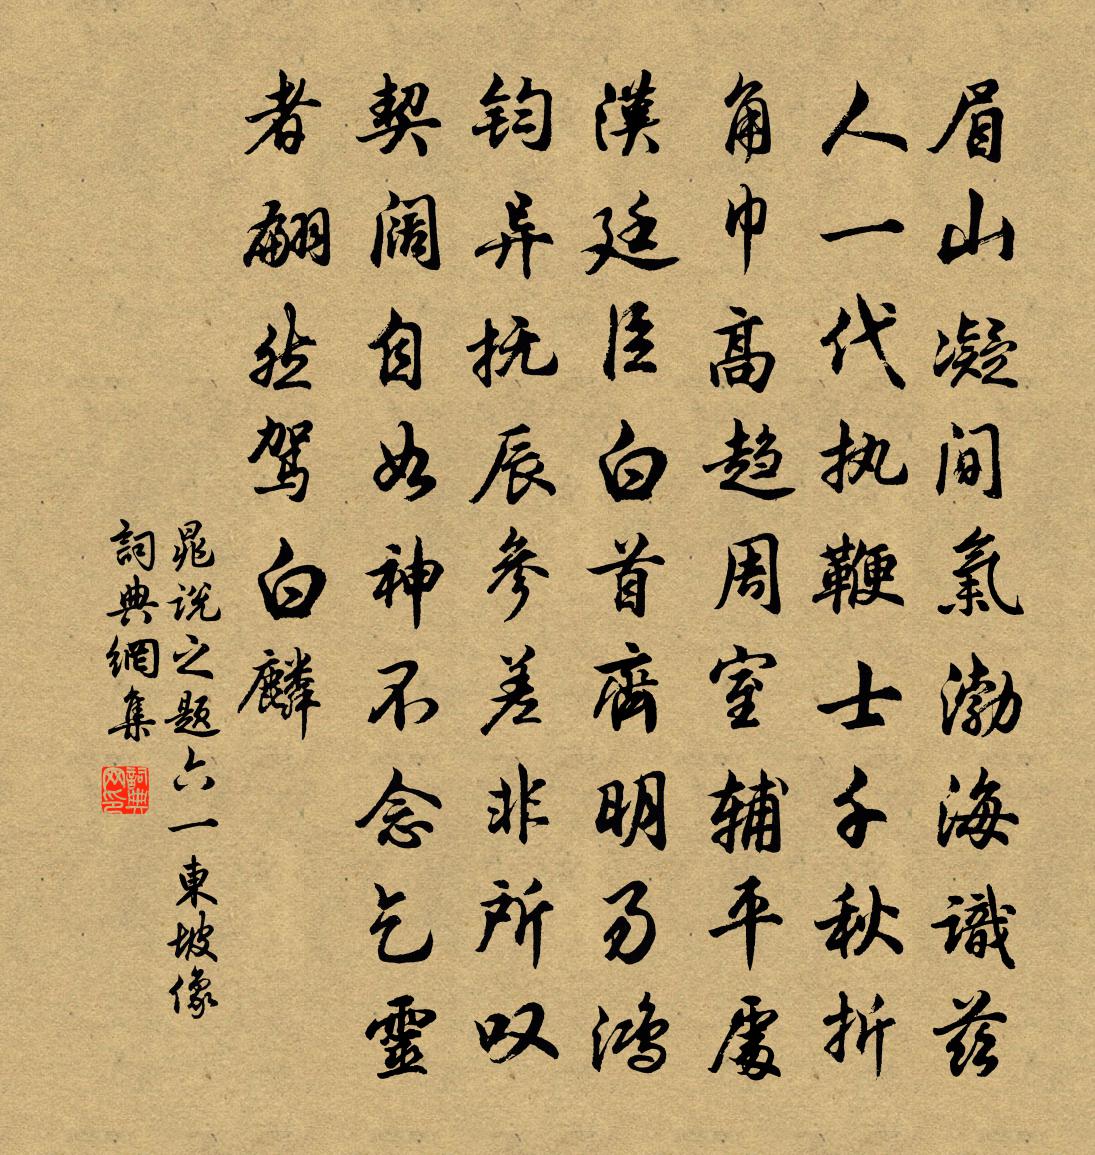 眉山凝间氣渤海識兹
人一代执鞭士千秋折
角巾高趋周室辅平處
漢廷臣白首齊明易鸿
钧异抚辰參差非所叹
契阔自如神不念乞靈
者翩然驾白麟
晁说之题六一東坡像
詞典網集
詞典网印